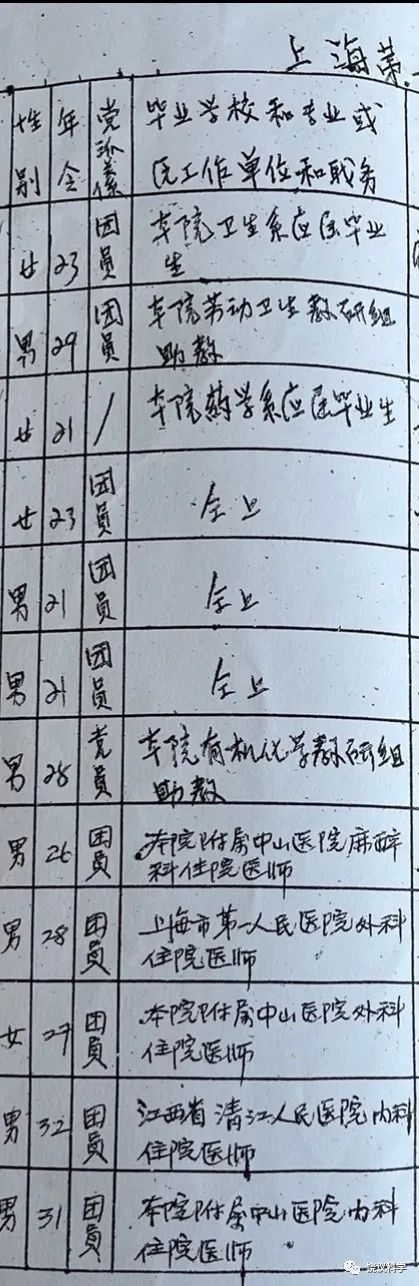 上海第
性别 年令 党派关系 毕业学校和专业或
原工作单位和职务
女 23 团员 本院卫生系应届毕业
生
男 29 团员 本院劳动卫生教研组
助教
女 21 / 本院药学系应届毕业生
女 23 团员 仝上
男 21 团员 仝上
男 21 团员 仝上
男 28 党员 本院有机化学教研组
助教
男 26 团员 本院附属中山医院麻醉
科住院医师
男 28 团员 上海市第一人民医院外科
住院医师
女 27 团员 本院附属中山医院外科
住院医师
男 32 团员 江西省清江人民医院内科
住院医师
男 31 团员 本院附属中山医院内科
住院医师
饶议科学